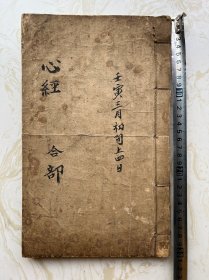 壬寅三月初旬上四日
心經
合部